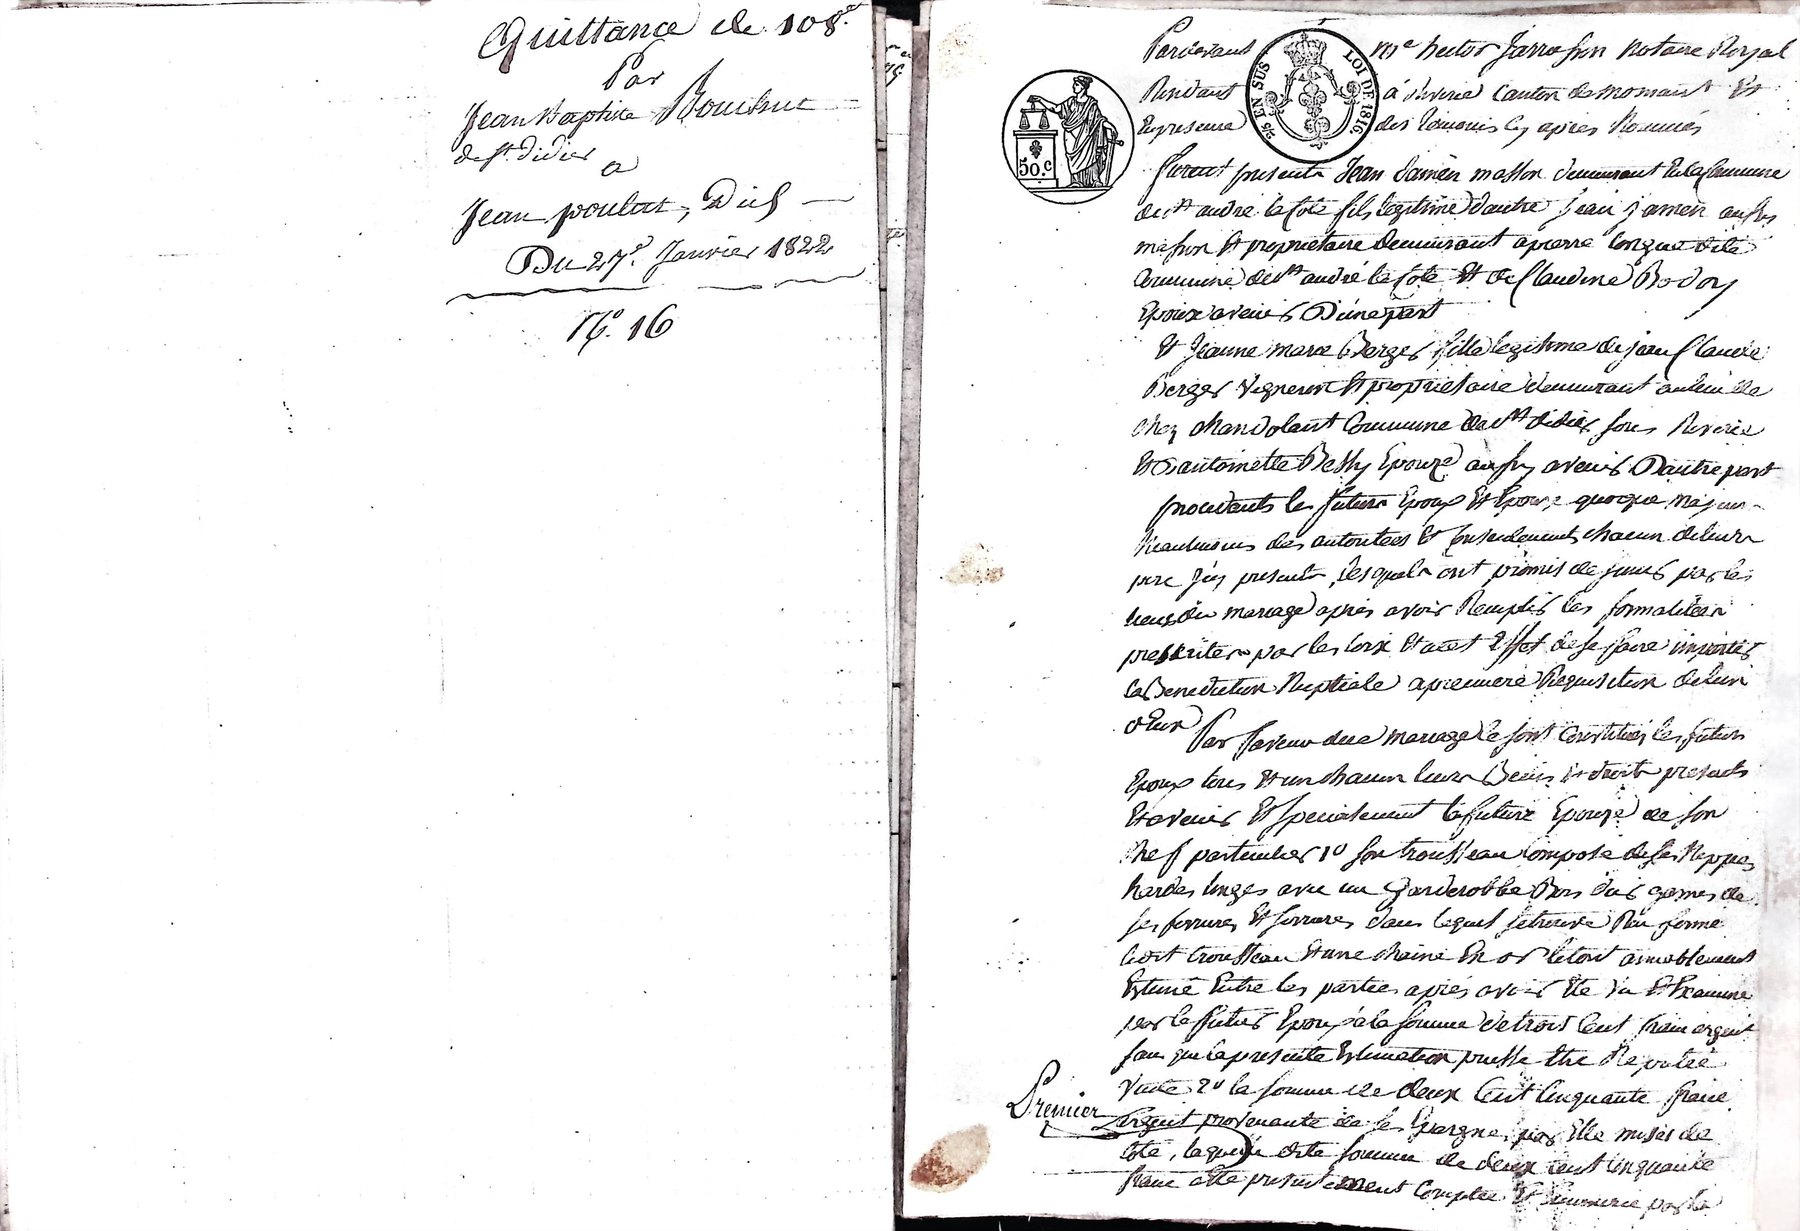 Quittance de 108.
Par
Jean Baptiste Bouchut
de St. Didier
a
Jean poulat, Dict
Du 27. Janvier 1822
N°. 16
Pardevant Me hector Jarrosson Notaire Royal
Residant à riverie Canton de mornant Et
En presence des témoins cy apres Nommés
50.c
5/5 EN SUS LOI DE 1816
furent presents Jean Damien masson demeurant En la Commune
de st andré la Cote fils legitime d'autre jean damien aussy
masson Et proprietaire demeurant a pierre longue dite
Commune de st andré la Cote Et de Claudine Bodoy
Epoux avenir D'une part
Et Jeanne marie Berger fille legitime de jean Claude
Berger Vigneron Et proprietaire demeurant au lieu de
chez chandolant Commune de st didier sous Riverie
Et d'antoinette Bessy Epouze aussy avenir D'autre part
procedants les futurs Epoux Et Epouze quoique majeurs
neanmoins des autoritees Et Consentements chacun de leurs
pere icy presents, lesquels ont promis de s'unir par les
liens du mariage apres avoir Remplis les formalitees
prescrites par les loix Et a cet Effet de se faire impartir
la Benediction Nuptiale a premiere Requisition de l'un
d'Eux
Par faveur du mariage se sont Constitués les futurs
Epoux tous Et un chacun leurs Biens Et droits presents
Et avenir Et specialement la future Epouze de son
chef particulier 1° son trousseau Composé de ses Nippes
hardes linges avec un Garderobbe Bois dur garnis de
ses ferrures Et serrures dans lequel se trouve Renfermé
ledit trousseau Et une chaine En or le tout amiablement
Estimé Entre les parties apres avoir Eté vu Et Examiné
par le futur Epoux a la somme de trois Cent franc argent
sans que la presente Estimation puisse Etre Reputée
Vente 2° la somme de deux Cent Cinquante franc
Premier
argent provenante de ses Epargnes par Elle mises de
Coté, laquelle dite somme de deux Cent Cinquante
franc a Eté presentement Comptée Et par la